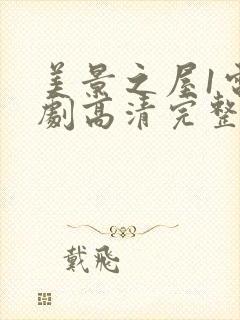 美景之屋1电
劇高清完整
戴飛